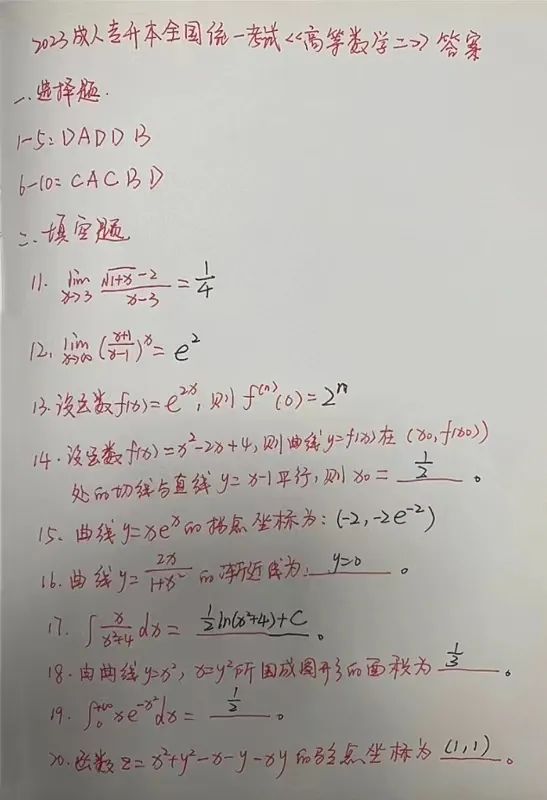 2023成人专升本全国统一考试<<高等数学二>>答案
一、选择题.
1-5: DADDB
6-10: CACBD
二、填空题
11. lim x→3 (√(1+x) -2)/(x-3) = 1/4
12. lim x→∞ ((x+1)/(x-1))^x = e^2
13. 设函数f(x)=e^{2x}, 则 f^{(n)}(0)=2^n
14. 设函数f(x)=x²-2x+4, 则曲线y=f(x)在(x0,f(x0))
处的切线与直线y=x-1平行, 则x0= 1/2 。
15. 曲线y=xe^x的拐点坐标为: (-2, -2e^{-2})
16. 曲线y= 2x/(1+x²) 的渐近线为: y=0 。
17. ∫ x/(x²+4) dx = 1/2 ln(x²+4)+C 。
18. 由曲线y=x², x=y²所围成图形的面积为 1/3 。
19. ∫_0^{+∞} xe^{-x²}dx= 1/2 。
20. 函数z=x²+y²-x-y-xy的驻点坐标为 (1,1) 。